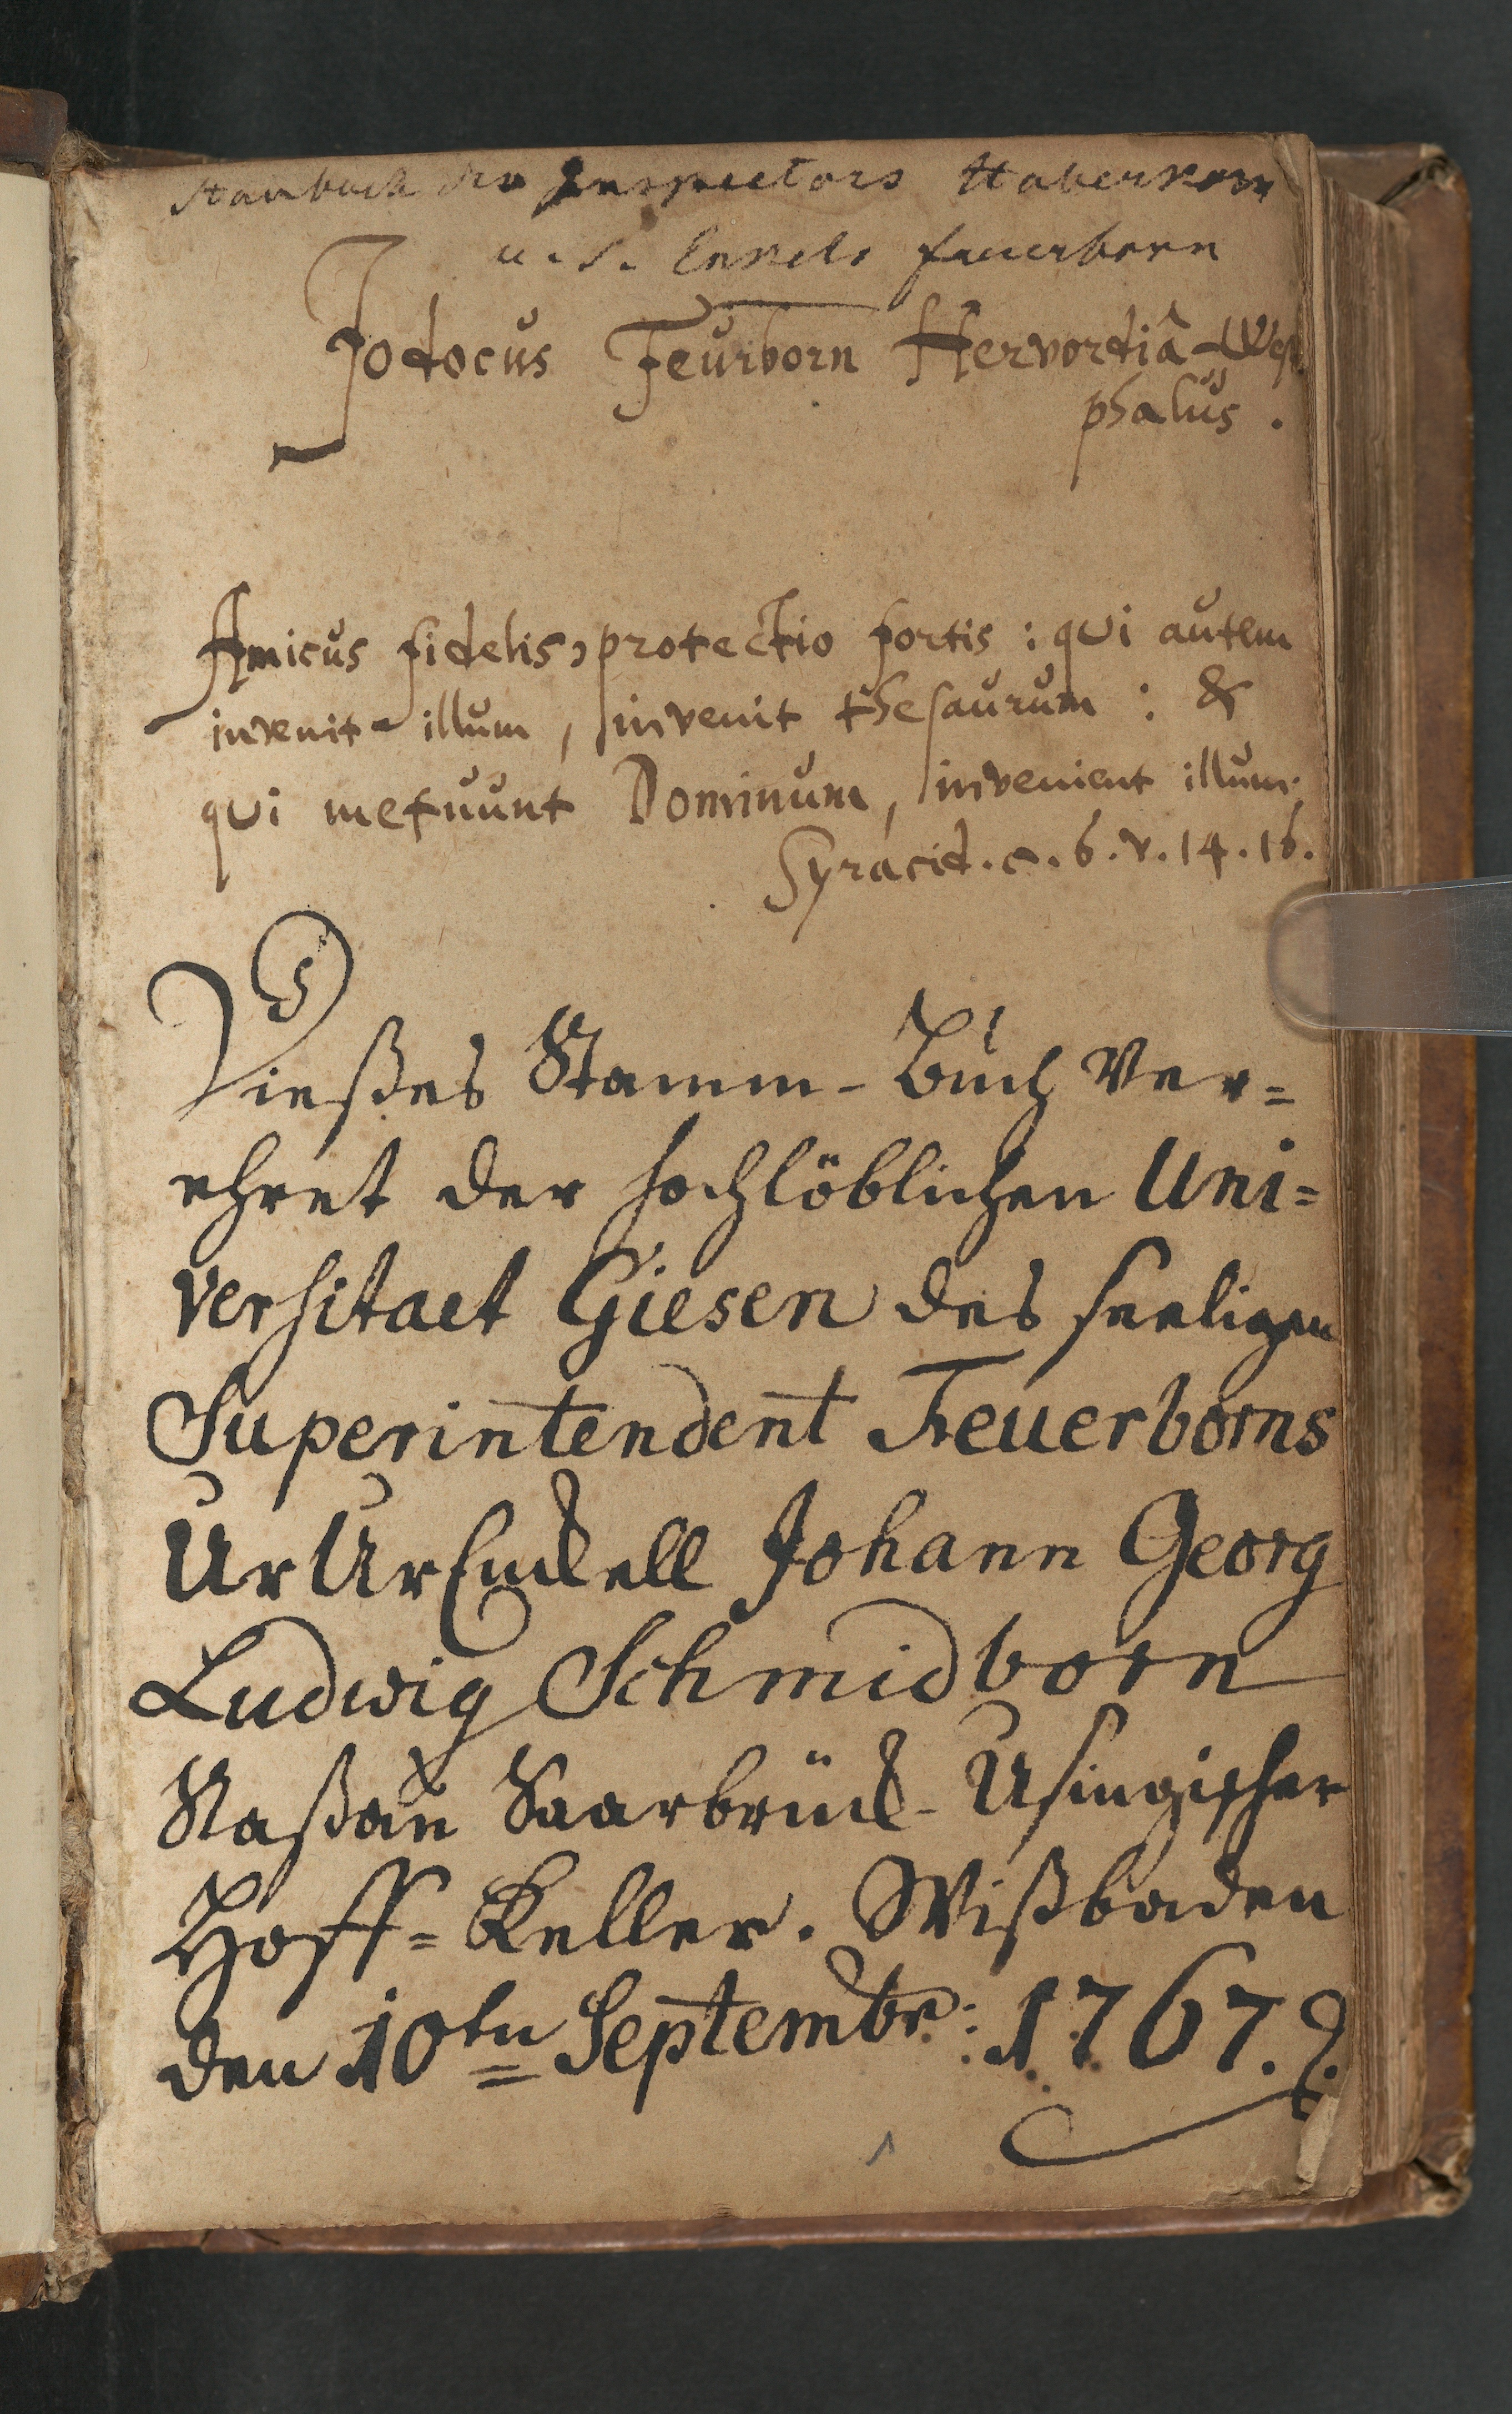 Stambuch des Inspectors Haberkorn
u. s. Enkels Feuerborn
Jodocus Feurborn Hervordiâ-West
phalus.
Amicus fidelis, protectio fortis: qui autem
invenit illum, invenit thesaurum: &
qui metuunt Dominum, invenient illum.
Syracid. c. 6. v. 14. 16.
Dießes Stamm-Buch Ver=
ehret der hochlöblichen Uni=
versitaet Giesen des seeligen
Superintendent Feuerborns
UrUrEnckell Johann Georg
Ludwig Schmidborn
Naßau Saarbrück-Usingischer
Hoff=Keller. Wißbaden
den 10tn Septembr: 1767.
1